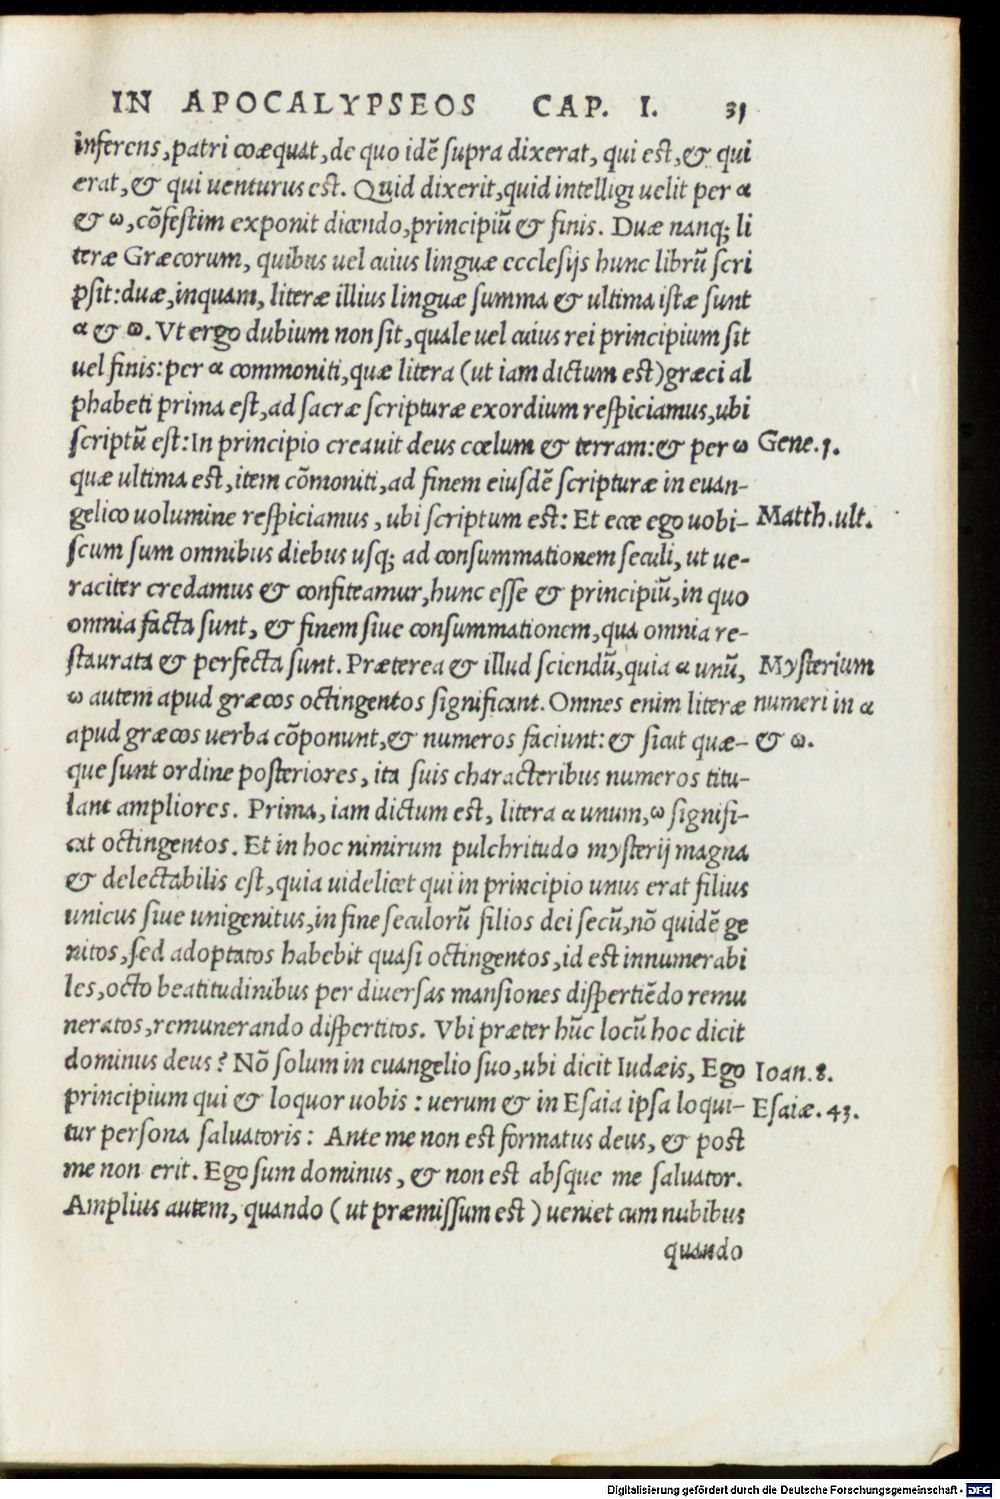 IN APOCALYPSEOS CAP. I. 31
inferens, patri coæquat, de quo idē supra dixerat, qui est, & qui
erat, & qui uenturus est. Quid dixerit, quid intelligi uelit per α
& ω, cōfestim exponit dicendo, principiū & finis. Duæ nanq; li
teræ Græcorum, quibus uel cuius linguæ ecclesijs hunc librū scri
psit: duæ, inquam, literæ illius linguæ summa & ultima istæ sunt
α & ω. Vt ergo dubium non sit, quale uel cuius rei principium sit
uel finis: per α commoniti, quæ litera (ut iam dictum est) græci al
phabeti prima est, ad sacræ scripturæ exordium respiciamus, ubi
scriptū est: In principio creauit deus cœlum & terram: & per ω
Gene. 1.
quæ ultima est, item cōmoniti, ad finem eiusdē scripturæ in euan-
gelico uolumine respiciamus, ubi scriptum est: Et ecce ego uobi-
Matth. ult.
scum sum omnibus diebus usq; ad consummationem seculi, ut ue-
raciter credamus & confiteamur, hunc esse & principiū, in quo
omnia facta sunt, & finem siue consummationem, qua omnia re-
staurata & perfecta sunt. Præterea & illud sciendū, quia α unū,
Mysterium
ω autem apud græcos octingentos significant. Omnes enim literæ
numeri in α
apud græcos uerba cōponunt, & numeros faciunt: & sicut quæ-
& ω.
que sunt ordine posteriores, ita suis characteribus numeros titu-
lant ampliores. Prima, iam dictum est, litera α unum, ω signifi-
cat octingentos. Et in hoc nimirum pulchritudo mysterij magna
& delectabilis est, quia uidelicet qui in principio unus erat filius
unicus siue unigenitus, in fine seculorū filios dei secū, nō quidē ge
nitos, sed adoptatos habebit quasi octingentos, id est innumerabi
les, octo beatitudinibus per diuersas mansiones dispertiēdo remu
neratos, remunerando dispertitos. Vbi præter hūc locū hoc dicit
dominus deus? Nō solum in euangelio suo, ubi dicit Iudæis, Ego
Ioan. 8.
principium qui & loquor uobis: uerum & in Esaia ipsa loqui-
Esaiæ. 43.
tur persona saluatoris: Ante me non est formatus deus, & post
me non erit. Ego sum dominus, & non est absque me saluator.
Amplius autem, quando (ut præmissum est) ueniet cum nubibus
quando
Digitalisierung gefördert durch die Deutsche Forschungsgemeinschaft - DFG